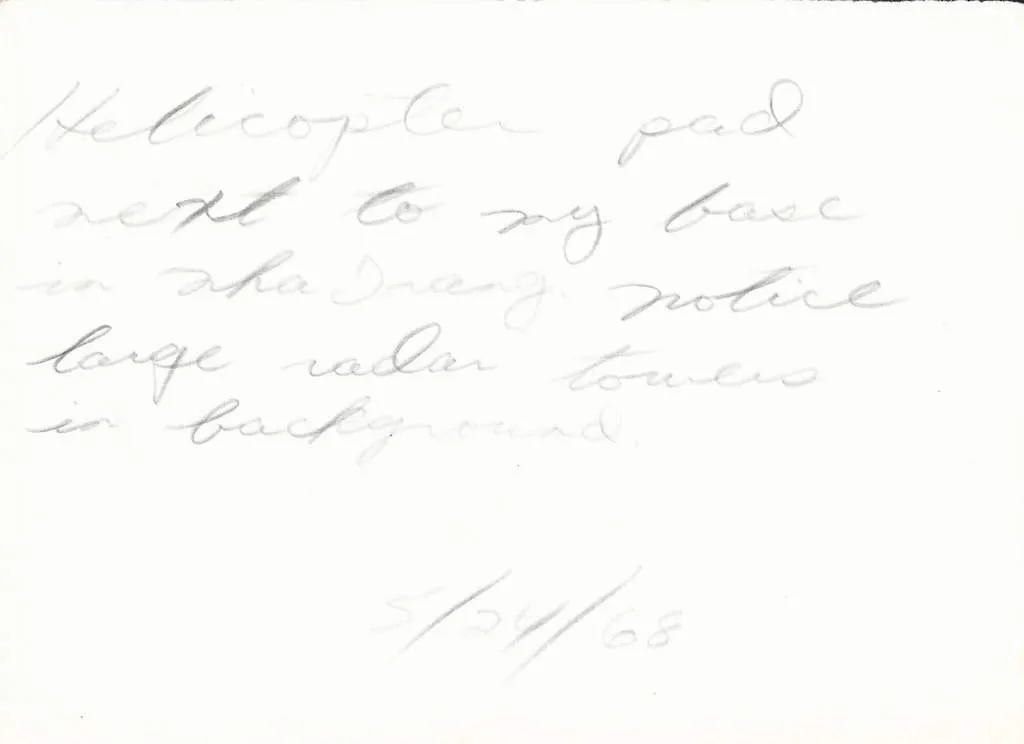 Helicopter pad
next to my base
in Nha Trang. Notice
large radar towers
in background.
5/24/68